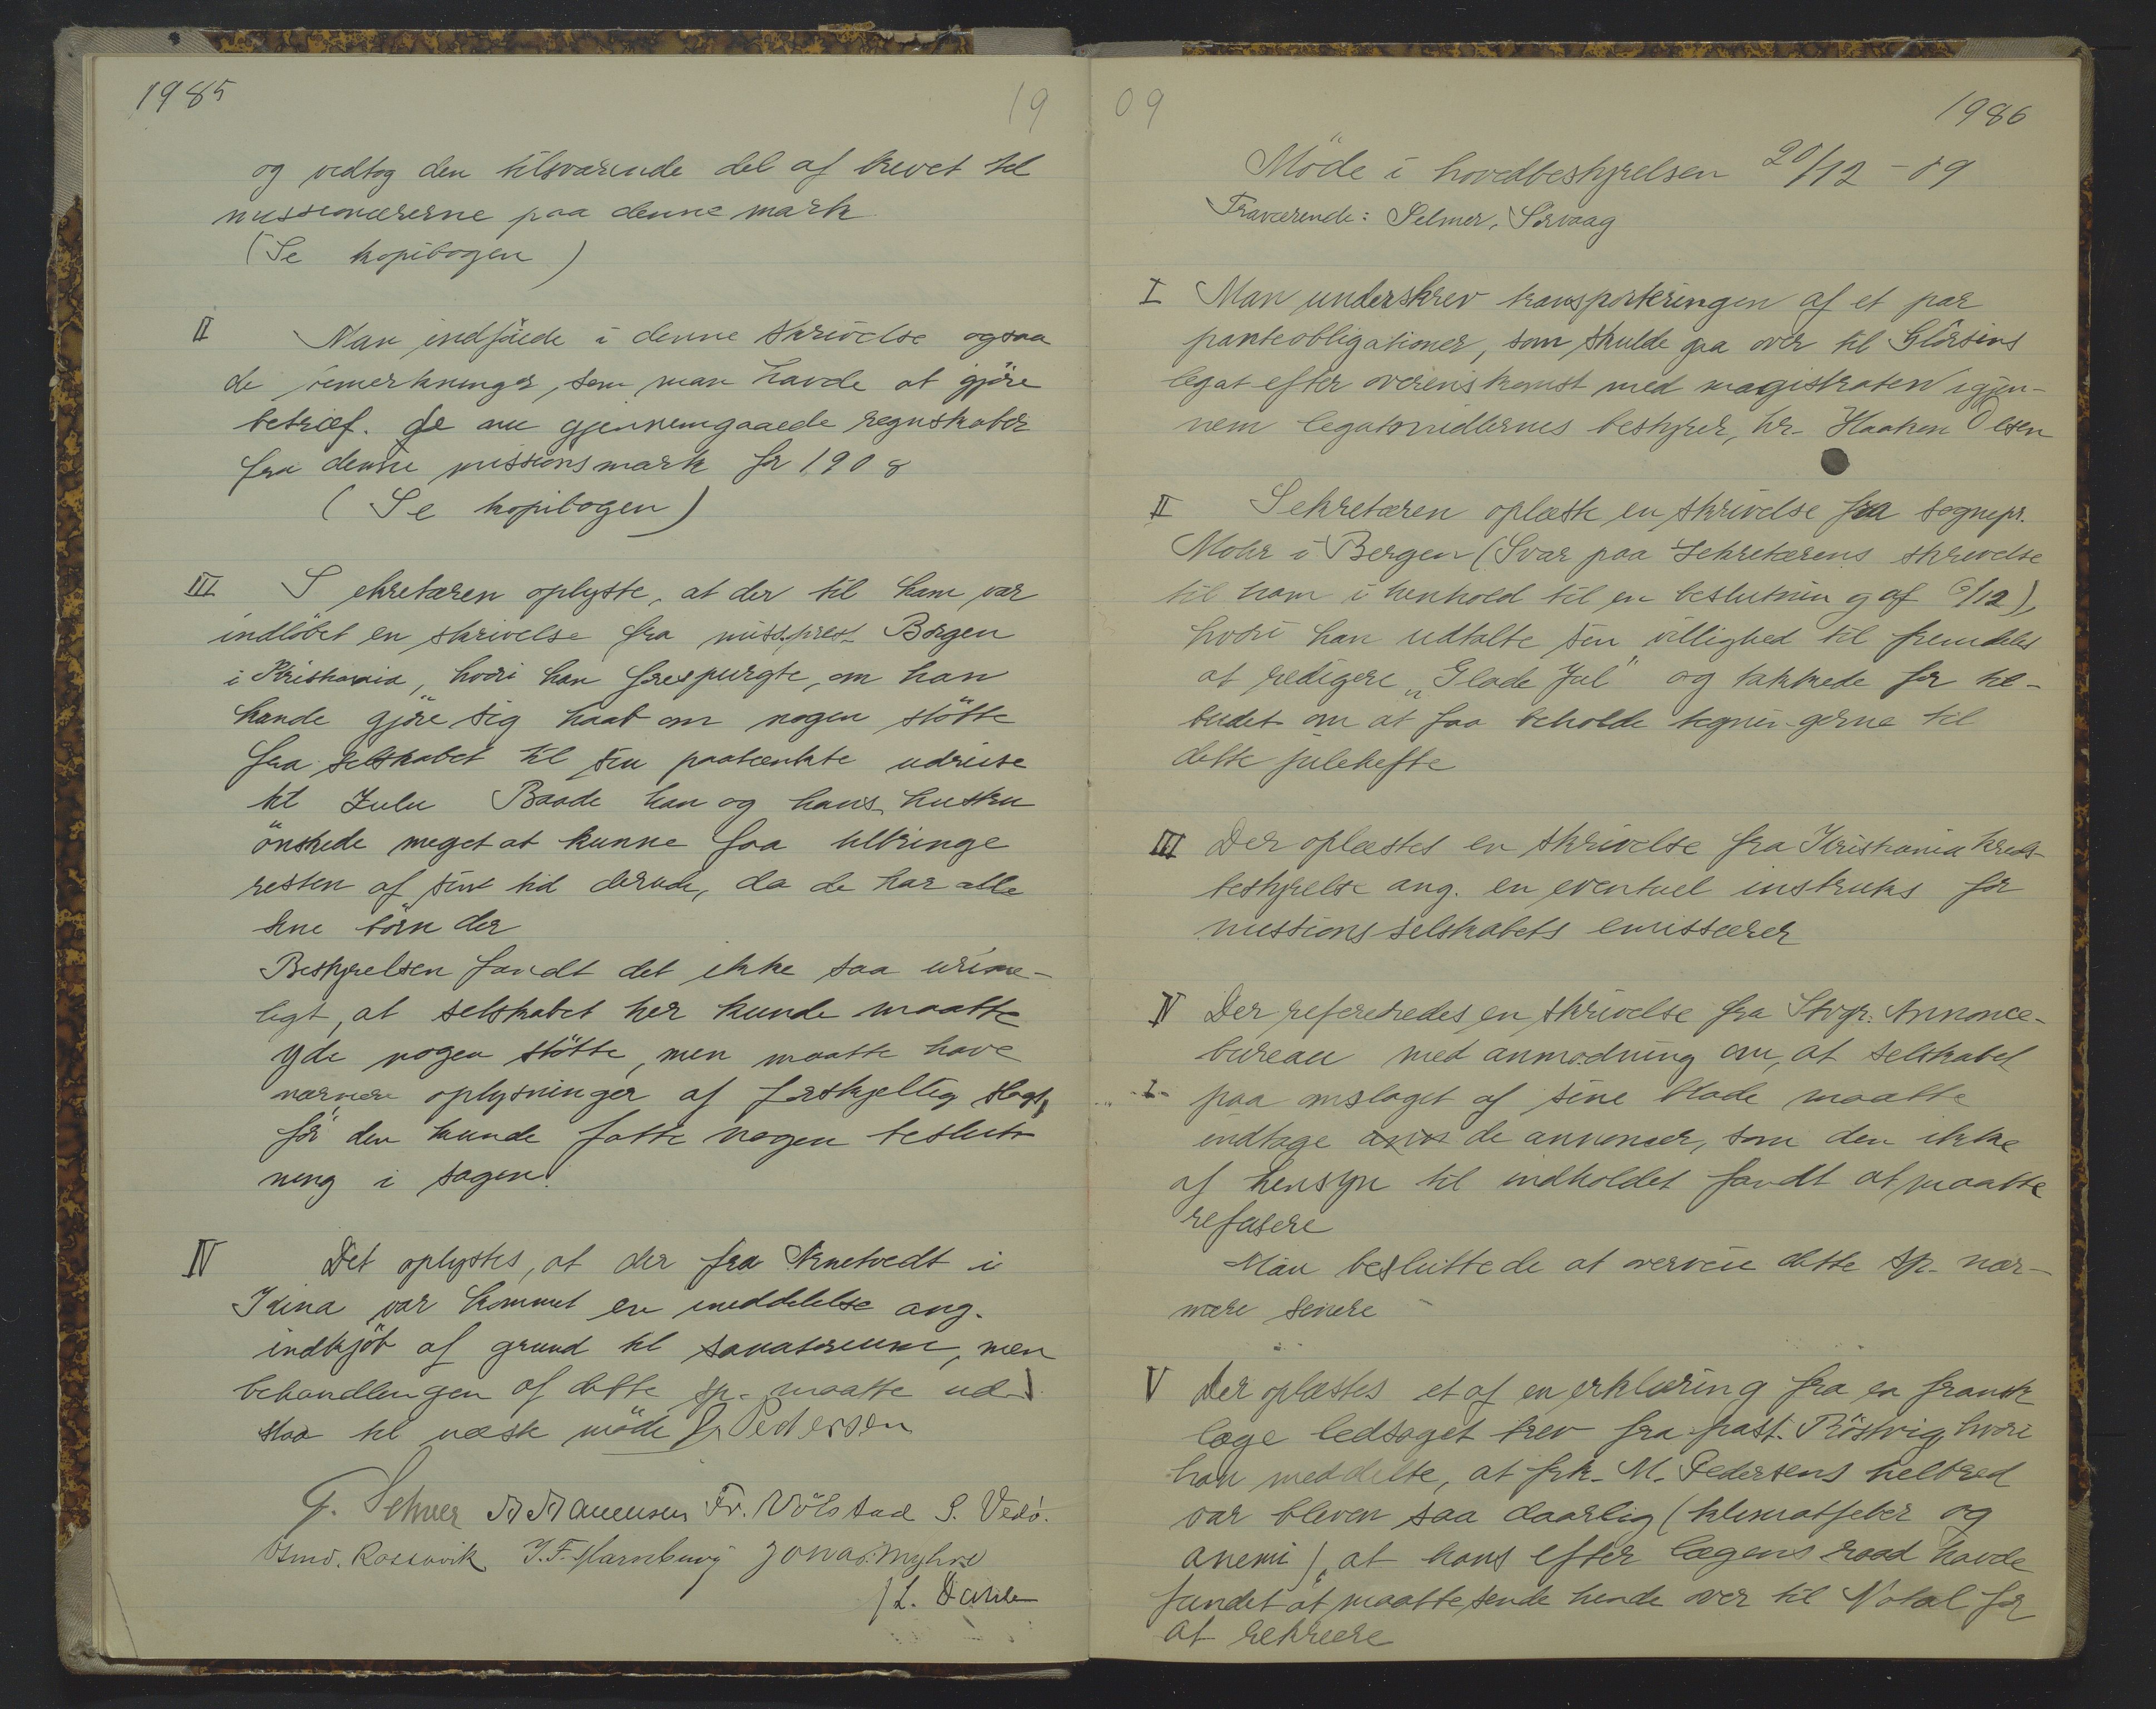 1985
19
og vedtog den tilsvarende del af brevet til
missionærerne paa denne mark
(Se kopibogen)
II Man indføiede i denne skrivelse ogsaa
de bemerkninger, som man havde at gjøre
betræf. de nu gjennemgaaede regnskaber
fra denne missionsmark for 1908
(Se kopibogen)
III Sekretæren oplyste, at der til ham var
indløbet en skrivelse fra missprest Borgen
i Kristiania, hvori han forespurgte, om han
kunde gjøre sig haab om nogen støtte
fra selskabet til sin paatænkte udreise
til Zulu Baade han og hans hustru
ønskede meget at kunne faa tilbringe
resten af sin tid derude, da de har alle
sine børn der
Bestyrelsen fandt det ikke saa urime-
ligt, at selskabet her kunde maatte
yde nogen støtte, men maatte have
nærmere oplysninger af forskjellig slags,
før den kunde fatte nogen beslut-
ning i sagen.
IV Det oplystes, at der fra Arnetvedt i
Kina var kommet en meddelelse ang.
indkjøb af grund til sanatorium, men
behandlingen af dette sp. maatte ud-
staa til næste møde Pedersen
G. Selmer Fr. Völstad S. Vedø.
Rossavik Jonas Myhre
L. Dahle
09
1986
Møde i hovedbestyrelsen 20/12 - 09
Fraværende: Selmer, Sørvaag
I Man underskrev transporteringen af et par
panteobligationer, som skulde gaa over til
legat efter overenskomst med magistraten igjen-
nem legatsmidlernes bestyrer, hr. Haakon Olsen
II Sekretæren oplæste en skrivelse fra sognepr.
Mohr i Bergen (Svar paa Sekretærens skrivelse
til ham i henhold til en beslutning af 6/12),
hvori han udtalte sin villighed til fremdeles
at redigere "Glade Jul" og takkede for til-
budet om at faa beholde tegningerne til
dette julehefte
III Der oplæstes en skrivelse fra Kristiania kreds-
bestyrelse ang. en eventuel instruks for
missionsselskabets emissærer
IV Der refereredes en skrivelse fra Stvgr. Annonce-
bureau med anmodning om, at selskabet
paa omslaget af sine blade maatte
indtage de annoncer, som den ikke
af hensyn til indholdet fandt at maatte
refusere
Man besluttede at overveie dette sp. nær-
mere senere
V Der oplæstes et af en erklæring fra en fransk
læge ledsaget brev fra past. Röstvig, hvori
han meddelte, at frk. M. Pedersens helbred
var bleven saa daarlig (klimatfeber og
anemi), at hans efter lægens raad havde
fundet at maatte sende hende over til Natal for
at rekreere